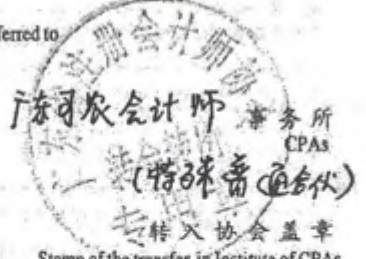 ferred to
广东司农会计师 事务所
CPAs
(特殊普通合伙)
转入协会盖章
Stamp of the transfer-in Institute of CPAs